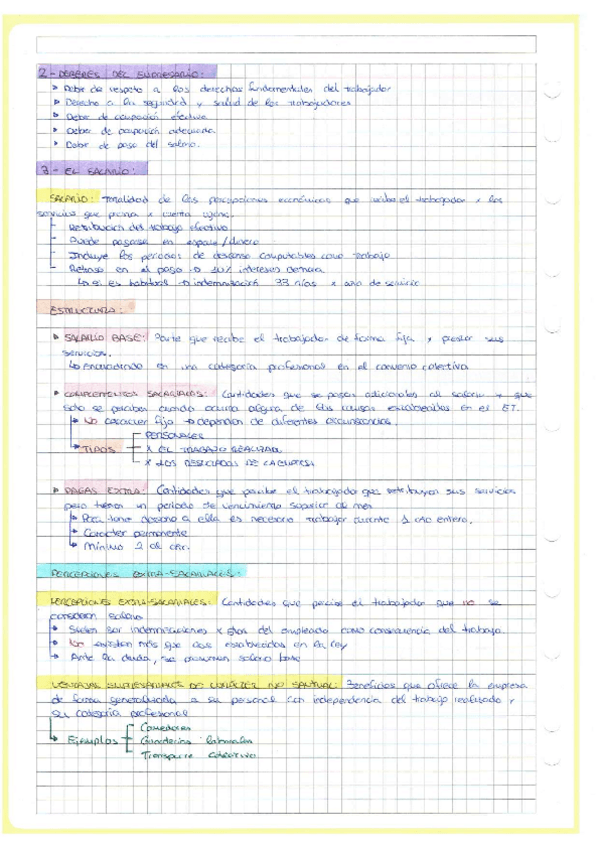 2 - DEBERES DEL EMPRESARIO:
▸ Deber de respeto a los derechos fundamentales del trabajador
▸ Derecho a la seguridad y salud de los trabajadores
▸ Deber de ocupación efectiva
▸ Deber de ocupación adecuada.
▸ Deber de pago del salario.
3 - EL SALARIO:
SALARIO: Totalidad de las percepciones económicas que recibe el trabajador x los
servicios que presta x cuenta ajena.
- Retribución del trabajo efectivo
- Puede pagarse en especie / dinero
- Incluye los periodos de descanso computables como trabajo
- Retraso en el pago → 10% intereses demora
↳ si es habitual → indemnización 33 días x año de servicio
ESTRUCTURA:
▸ SALARIO BASE: Parte que recibe el trabajador de forma fija, x prestar sus
servicios.
↳ Encuadrado en una categoría profesional en el convenio colectivo
▸ COMPLEMENTOS SALARIALES: Cantidades que se pagan adicionales al salario y que
solo se perciben cuando ocurra alguna de las causas establecidas en el ET.
→ No carácter fijo → dependen de diferentes circunstancias.
→ TIPOS
PERSONALES
X EL TRABAJO REALIZADO
X LOS RESULTADOS DE LA EMPRESA
▸ PAGAS EXTRA: Cantidades que percibe el trabajador que retribuyen sus servicios
pero tienen un periodo de vencimiento superior al mes
→ Para tener derecho a ella es necesario trabajar durante 1 año entero.
→ Carácter permanente
→ Mínimo 2 al año.
PERCEPCIONES EXTRA-SALARIALES:
PERCEPCIONES EXTRA-SALARIALES: Cantidades que percibe el trabajador que no se
consideran salario
→ Suelen ser indemnizaciones x gtos del empleado como consecuencia del trabajo.
→ No existen más que las establecidas en la ley
→ Ante la duda, se presumen salario base
VENTAJAS EMPRESARIALES DE CARÁCTER NO SALARIAL: Beneficios que ofrece la empresa
de forma generalizada a su personal con independencia del trabajo realizado y
su categoría profesional
↳ Ejemplos
Comedores
Guarderías laborales
Transporte colectivo